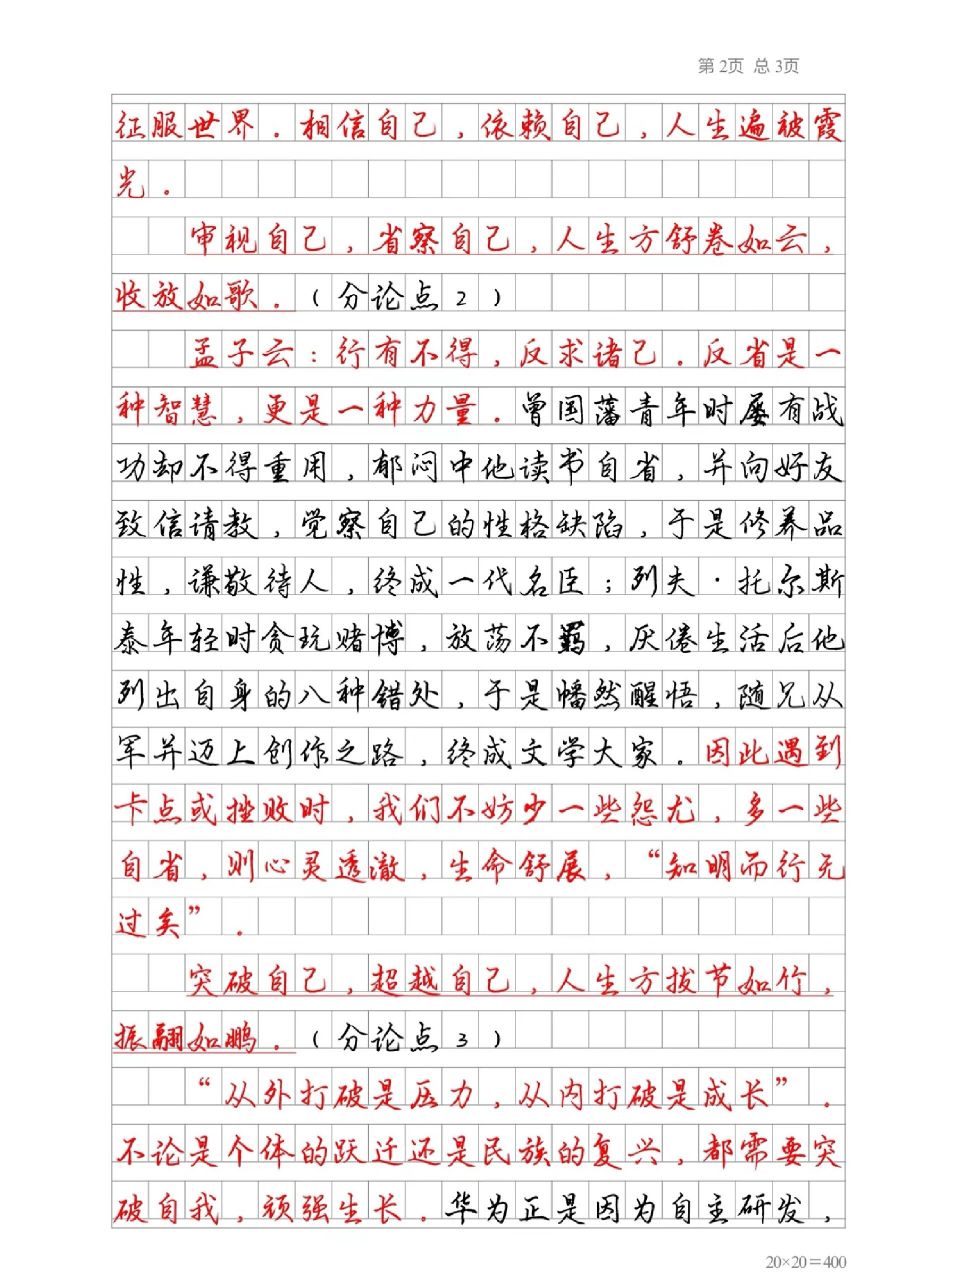 第2页 总3页
征服世界。相信自己，依赖自己，人生遍被霞
光。
审视自己，省察自己，人生方舒卷如云，
收放如歌。（分论点2）
孟子云：行有不得，反求诸己。反省是一
种智慧，更是一种力量。曾国藩青年时屡有战
功却不得重用，郁闷中他读书自省，并向好友
致信请教，觉察自己的性格缺陷，于是修养品
性，谦敬待人，终成一代名臣；列夫·托尔斯
泰年轻时贪玩赌博，放荡不羁，厌倦生活后他
列出自身的八种错处，于是幡然醒悟，随兄从
军并迈上创作之路，终成文学大家。因此遇到
卡点或挫败时，我们不妨少一些怨尤，多一些
自省，则心灵透澈，生命舒展，“知明而行无
过矣”。
突破自己，超越自己，人生方拔节如竹，
振翮如鹏。（分论点3）
“从外打破是压力，从内打破是成长”。
不论是个体的跃迁还是民族的复兴，都需要突
破自我，顽强生长。华为正是因为自主研发，
20×20＝400